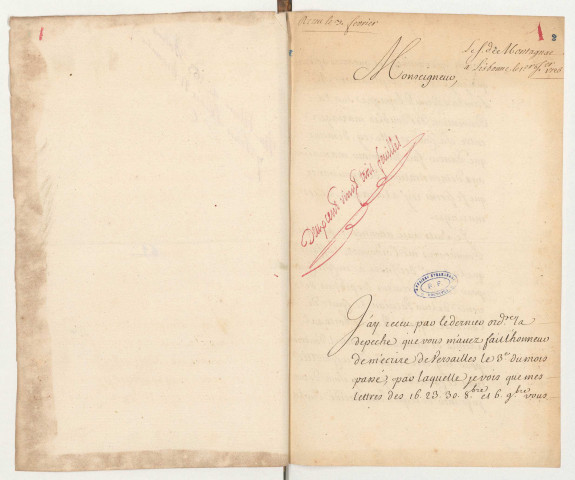 1
Receu le 2e fevrier
1
2
Le Sr. de Montagnac
a Lisbonne le 1er
Monseigneur,
Deux cent vingt trois feuilles
J'ay receu par le dernier ordre. la
depeche que vous m'avez fait l'honneur
de m'ecrire de Versailles le 3e. du mois
passé, par laquelle je vois que mes
lettres des 16. 23. 30. 8bre et 6. 9bre vous